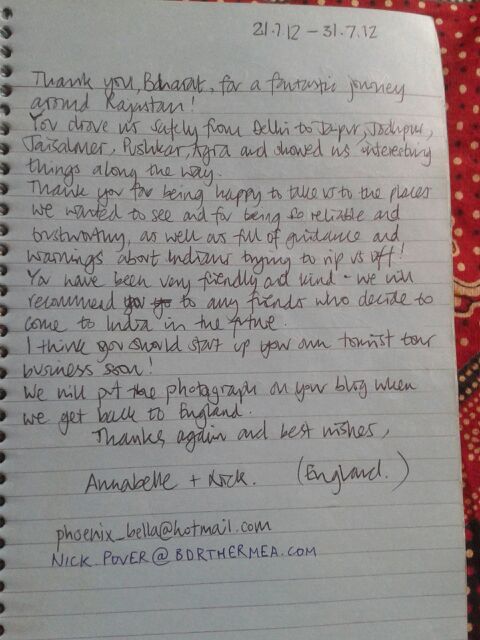 21.7.12 – 31.7.12
Thank you, Bharat, for a fantastic journey
around Rajastan!
You drove us safely from Delhi to Jaipur, Jodhpur,
Jaisalmer, Pushkar, Agra and showed us interesting
things along the way.
Thank you for being happy to take us to the places
we wanted to see and for being so reliable and
trustworthy, as well as full of guidance and
warnings about Indians trying to rip us off!
You have been very friendly and kind - we will
recommend you to any friends who decide to
come to India in the future.
I think you should start up your own tourist tour
business soon!
We will put the photograph on your blog when
we get back to England.
Thanks again and best wishes,
Annabelle + Nick. (England.)
phoenix_bella@hotmail.com
NICK.POVER@BDRTHERMEA.COM